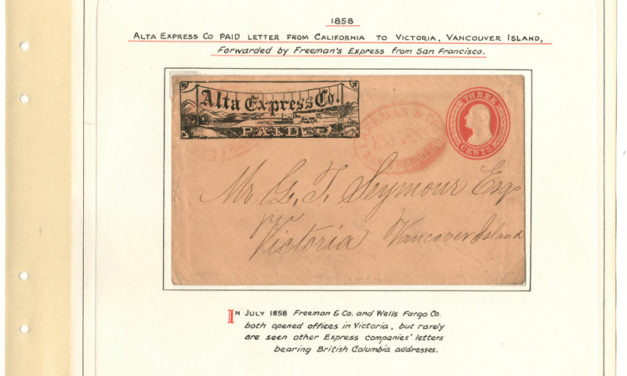 1858
Alta Express Co Paid Letter from California to Victoria, Vancouver Island,
Forwarded by Freeman's Express from San Francisco.
Alta Express Co.
PAID
FREEMAN & CO
THREE
CENTS
Mr G. T. Seymour Esqr
Victoria Vancover Island
In July 1858 Freeman & Co. and Wells Fargo Co.
both opened offices in Victoria, but rarely
are seen other Express companies' letters
bearing British Columbia addresses.